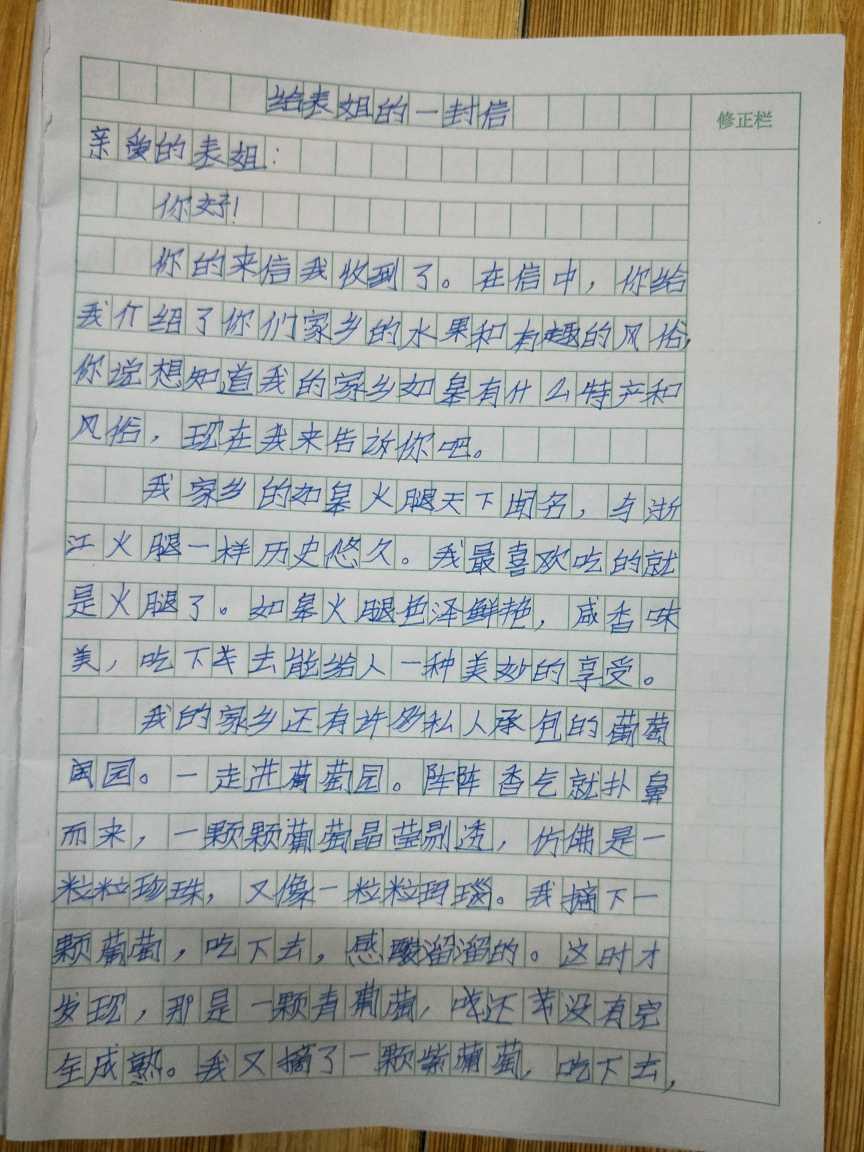 给表姐的一封信
修正栏
亲爱的表姐：
你好！
你的来信我收到了。在信中，你给
我介绍了你们家乡的水果和有趣的风俗，
你说想知道我的家乡如皋有什么特产和
风俗，现在我来告诉你吧。
我家乡的如皋火腿天下闻名，与浙
江火腿一样历史悠久。我最喜欢吃的就
是火腿了。如皋火腿色泽鲜艳，咸香味
美，吃下去能给人一种美妙的享受。
我的家乡还有许多私人承包的葡萄
园。一走进葡萄园。阵阵香气就扑鼻
而来，一颗颗葡萄晶莹剔透，仿佛是一
粒粒珍珠，又像一粒粒玛瑙。我摘下一
颗葡萄，吃下去，感酸溜溜的。这时才
发现，那是一颗青葡萄，还没有完
全成熟。我又摘了一颗紫葡萄，吃下去，